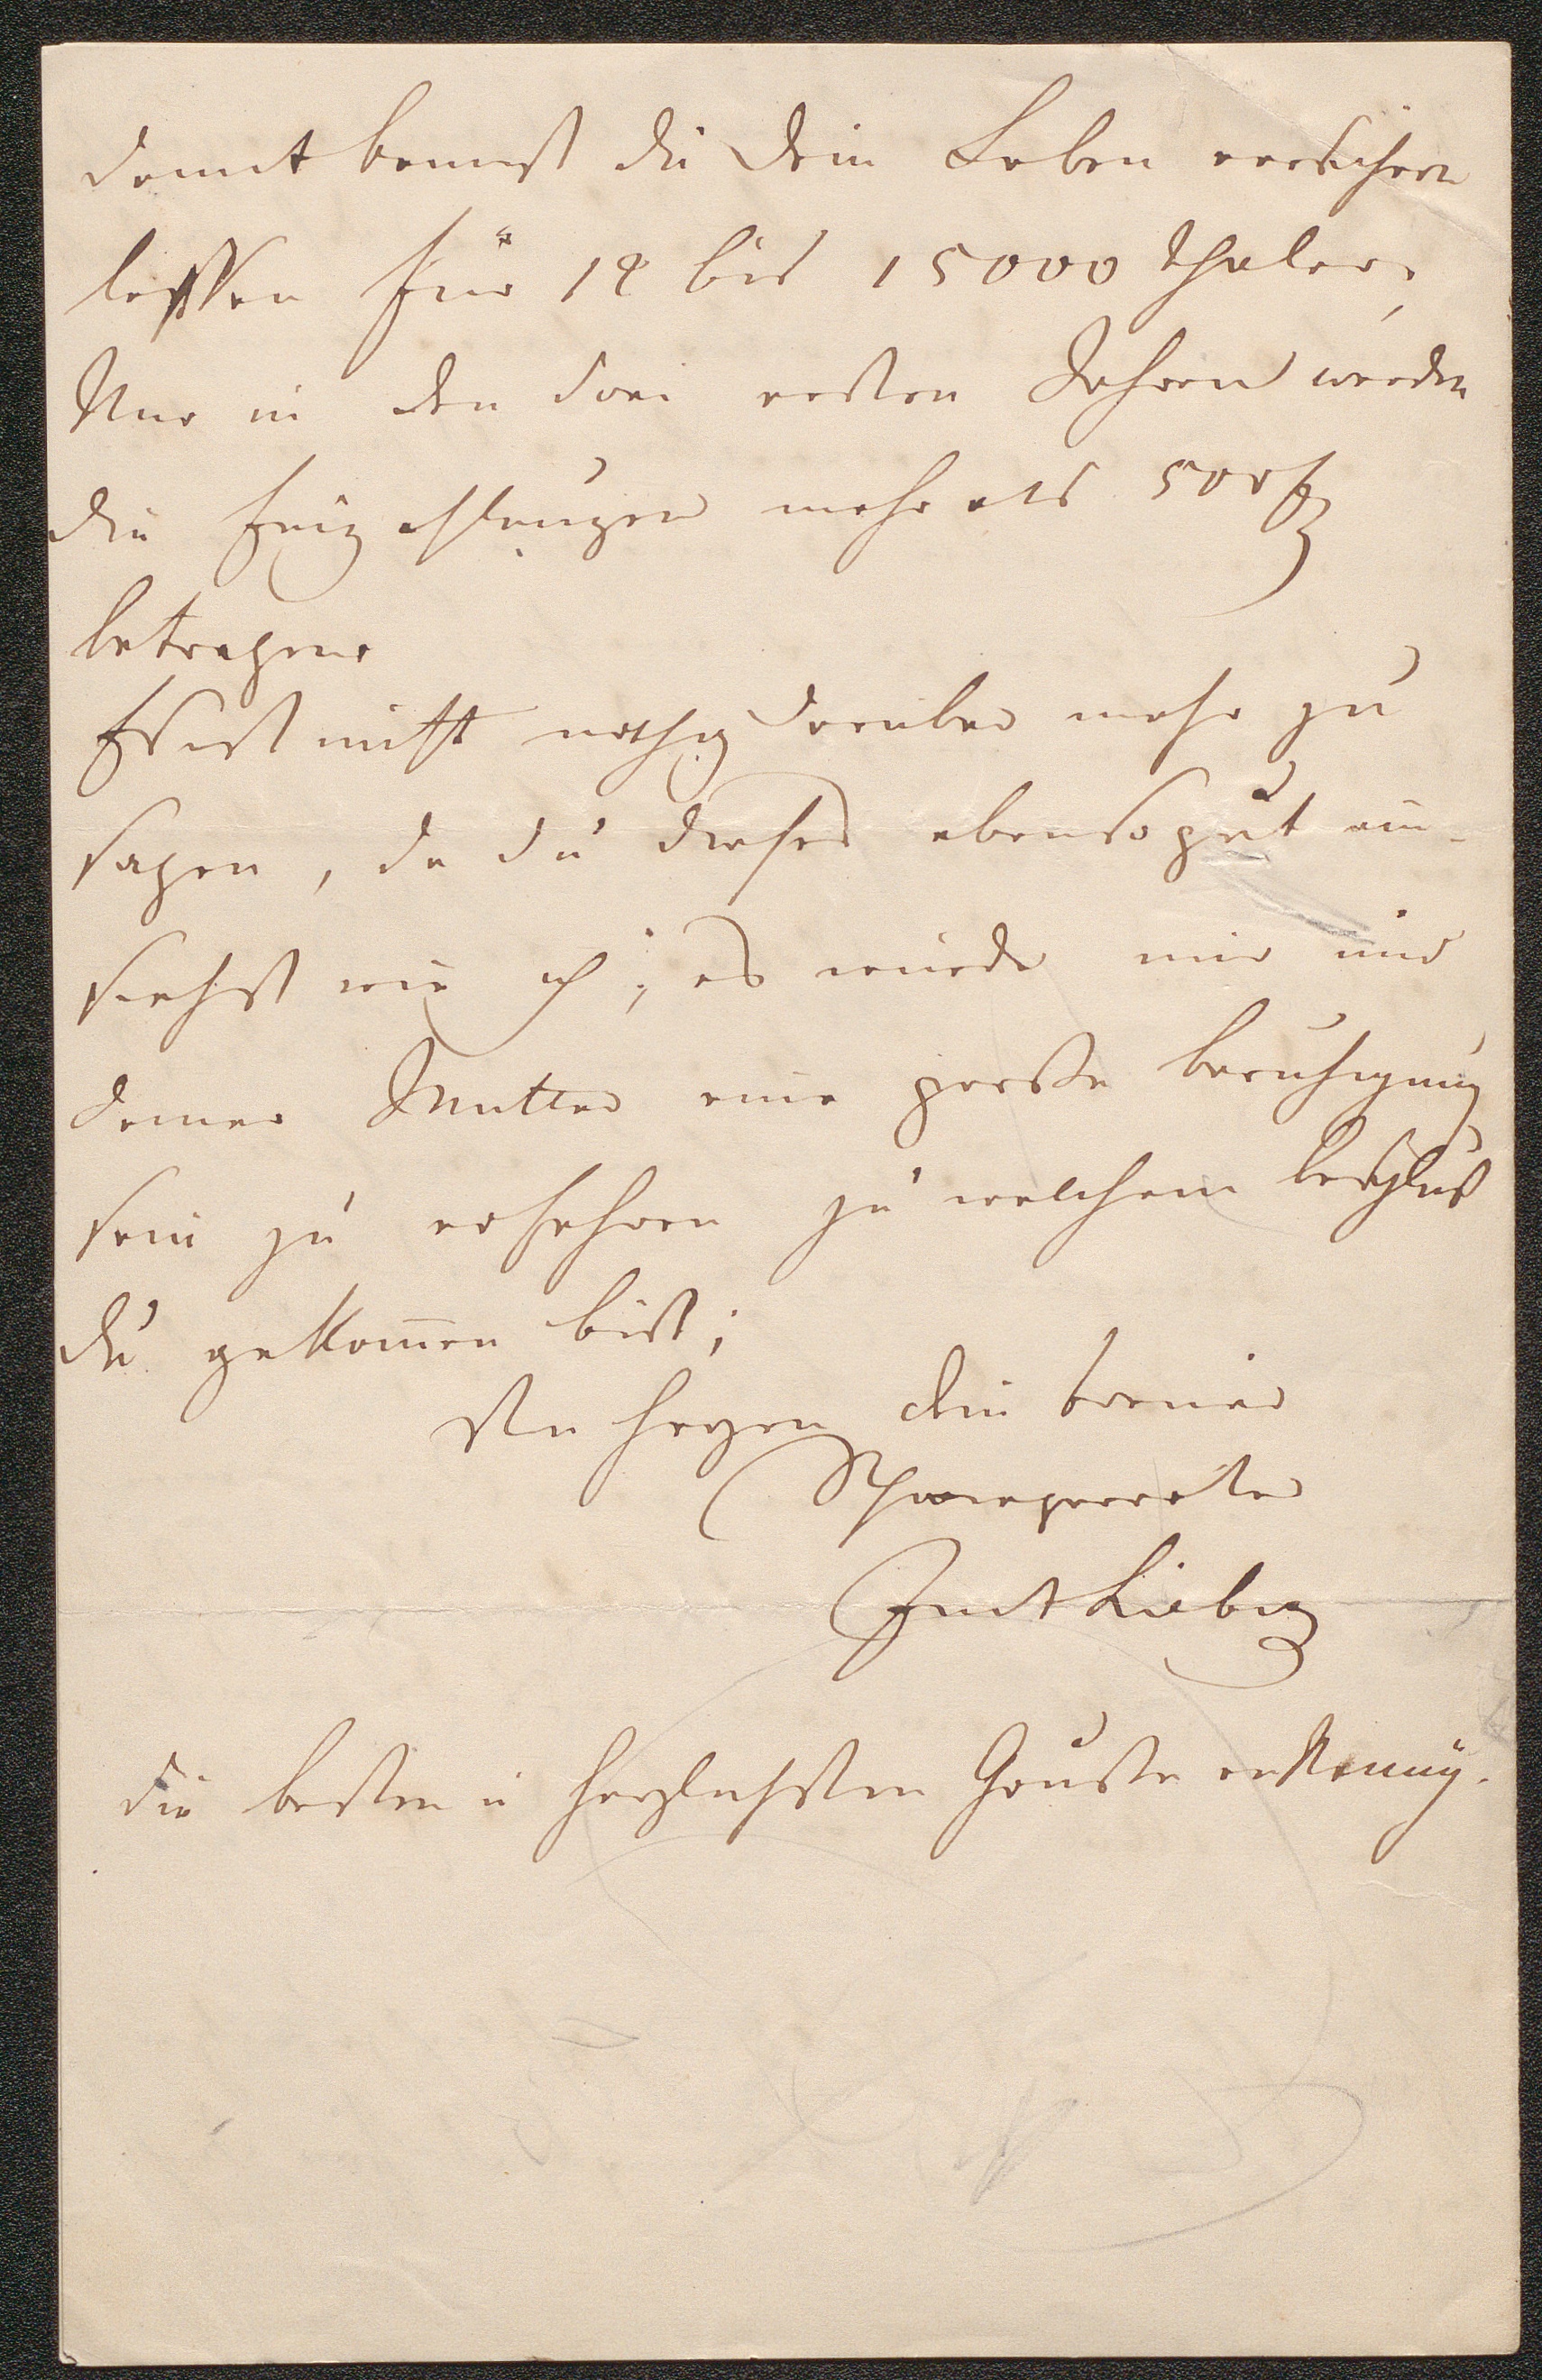 damit kannst du Dein Leben versichern
lassen für 12 bis 15000 Thaler;
Nur in den drei ersten Jahren werden
die Einzahlungen mehr als 500 f
betragen.
Es ist nicht nöthig darüber mehr zu
sagen, da du dieses ebensogut ein-
siehst wie ich; es würde mir und
deiner Mutter eine große Beruhigung
sein zu erfahren zu welchem Beschluß
du gekom̅en bist;
Von Herzen Dein treuer
Schwiegervater
Just Liebig
Die besten u herzlichsten Grüße an Nanny.